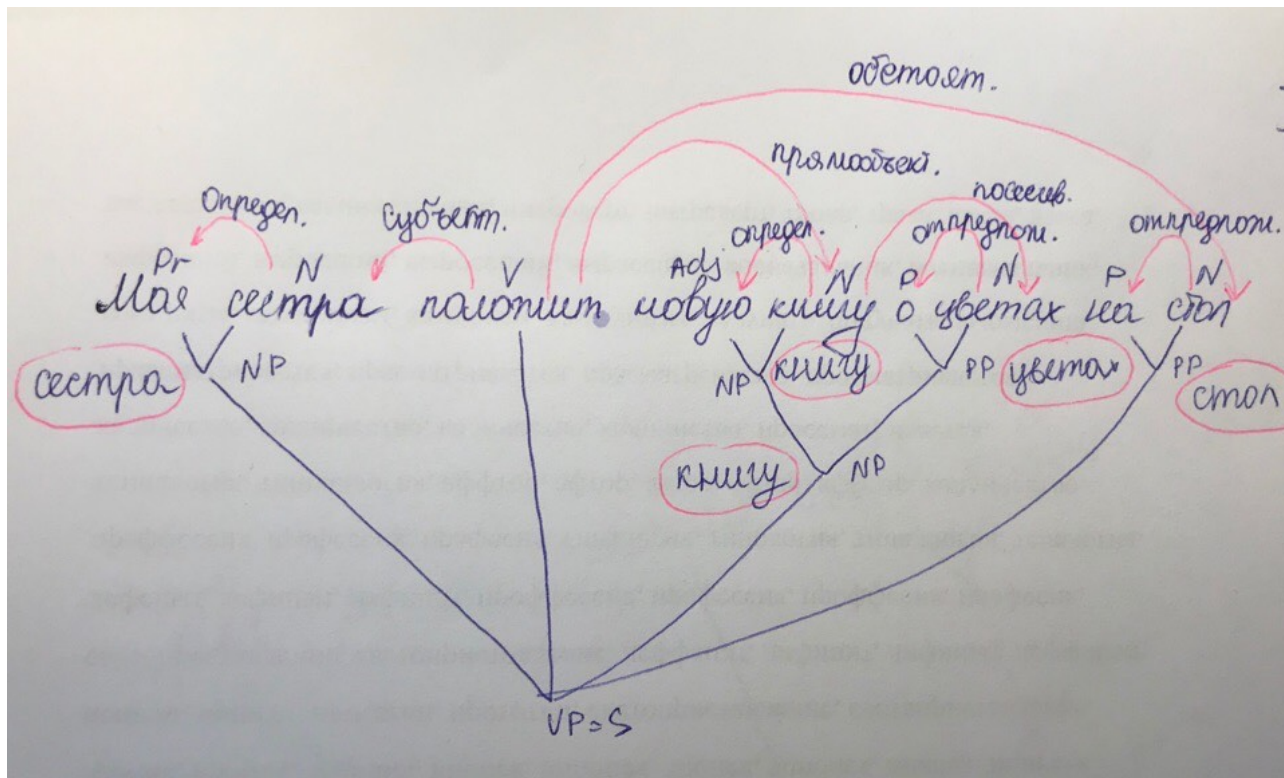 обстоят.
прямообъект.
посессив.
Определ. субъект. определ. отпредлож. отпредлож.
Pr N V Adj N P N P N
Моя сестра положит новую книгу о цветах на стол
сестра NP NP книгу PP цветах PP стол
книгу NP
VP=S